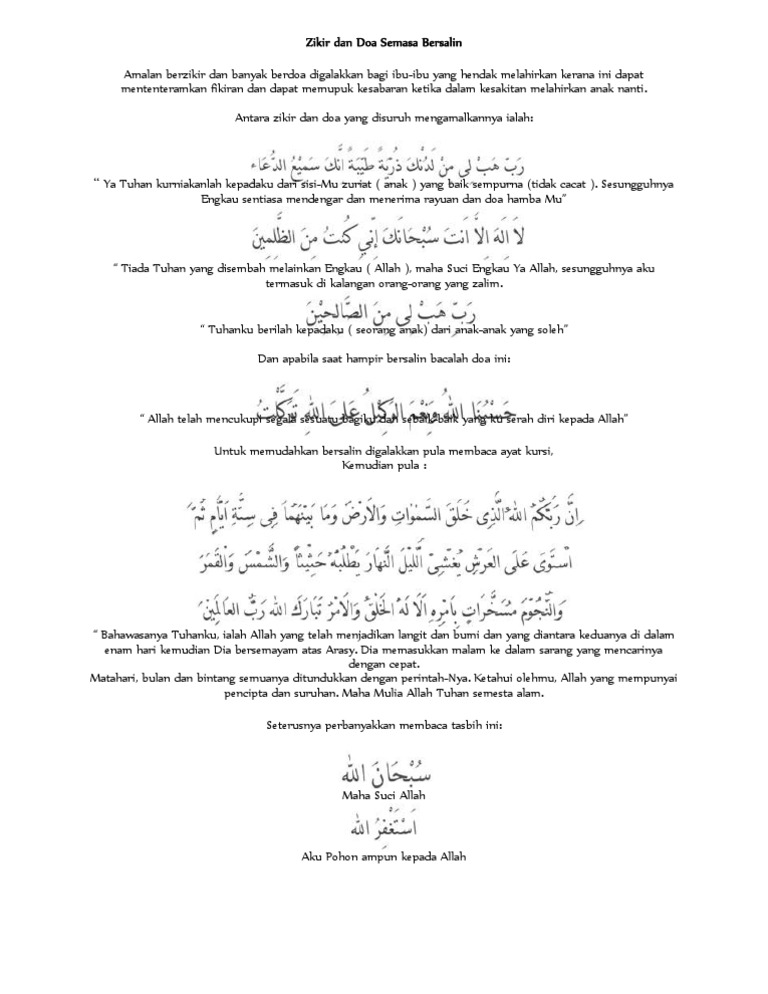 Zikir dan Doa Semasa Bersalin
Amalan berzikir dan banyak berdoa digalakkan bagi ibu-ibu yang hendak melahirkan kerana ini dapat
mententeramkan fikiran dan dapat memupuk kesabaran ketika dalam kesakitan melahirkan anak nanti.
Antara zikir dan doa yang disuruh mengamalkannya ialah:
رَبِّ هَبْ لِي مِنْ لَدُنْكَ ذُرِّيَّةً طَيِّبَةً اِنَّكَ سَمِيْعُ الدُّعَاء
“ Ya Tuhan kurniakanlah kepadaku dari sisi-Mu zuriat ( anak ) yang baik sempurna (tidak cacat ). Sesungguhnya
Engkau sentiasa mendengar dan menerima rayuan dan doa hamba Mu”
لَا اِلَهَ اِلَّا اَنْتَ سُبْحَانَكَ اِنِّي كُنْتُ مِنَ الظَّلِمِينَ
“ Tiada Tuhan yang disembah melainkan Engkau ( Allah ), maha Suci Engkau Ya Allah, sesungguhnya aku
termasuk di kalangan orang-orang yang zalim.
رَبِّ هَبْ لِي مِنَ الصَّالِحِيْنَ
“ Tuhanku berilah kepadaku ( seorang anak) dari anak-anak yang soleh”
Dan apabila saat hampir bersalin bacalah doa ini:
حَسْبُنَا اللهُ وَنِعْمَ الْوَكِيْلُ عَلَى اللهِ تَوَكَّلْتُ
“ Allah telah mencukupi segala sesuatu bagiku dan sebaik-baik yang ku serah diri kepada Allah”
Untuk memudahkan bersalin digalakkan pula membaca ayat kursi,
Kemudian pula :
اِنَّ رَبَّكُمُ اللهُ الَّذِى خَلَقَ السَّمٰوَاتِ وَالْاَرْضَ وَمَا بَيْنَهُمَا فِى سِتَّةِ اَيَّامٍ ثُمَّ
اسْتَوَى عَلَى العَرْشِ يُغْشِى الَّيْلَ النَّهَارَ يَطْلُبُهُ حَثِيْثًا وَالشَّمْسَ وَالْقَمَرَ
وَالنُّجُوْمَ مُسَخَّرَاتٍ بِاَمْرِهِ اَلَا لَهُ الْخَلْقُ وَالْاَمْرُ تَبَارَكَ اللهُ رَبُّ العَالَمِيْنَ
“ Bahawasanya Tuhanku, ialah Allah yang telah menjadikan langit dan bumi dan yang diantara keduanya di dalam
enam hari kemudian Dia bersemayam atas Arasy. Dia memasukkan malam ke dalam sarang yang mencarinya
dengan cepat.
Matahari, bulan dan bintang semuanya ditundukkan dengan perintah-Nya. Ketahui olehmu, Allah yang mempunyai
pencipta dan suruhan. Maha Mulia Allah Tuhan semesta alam.
Seterusnya perbanyakkan membaca tasbih ini:
سُبْحَانَ الله
Maha Suci Allah
اَسْتَغْفِرُ الله
Aku Pohon ampun kepada Allah